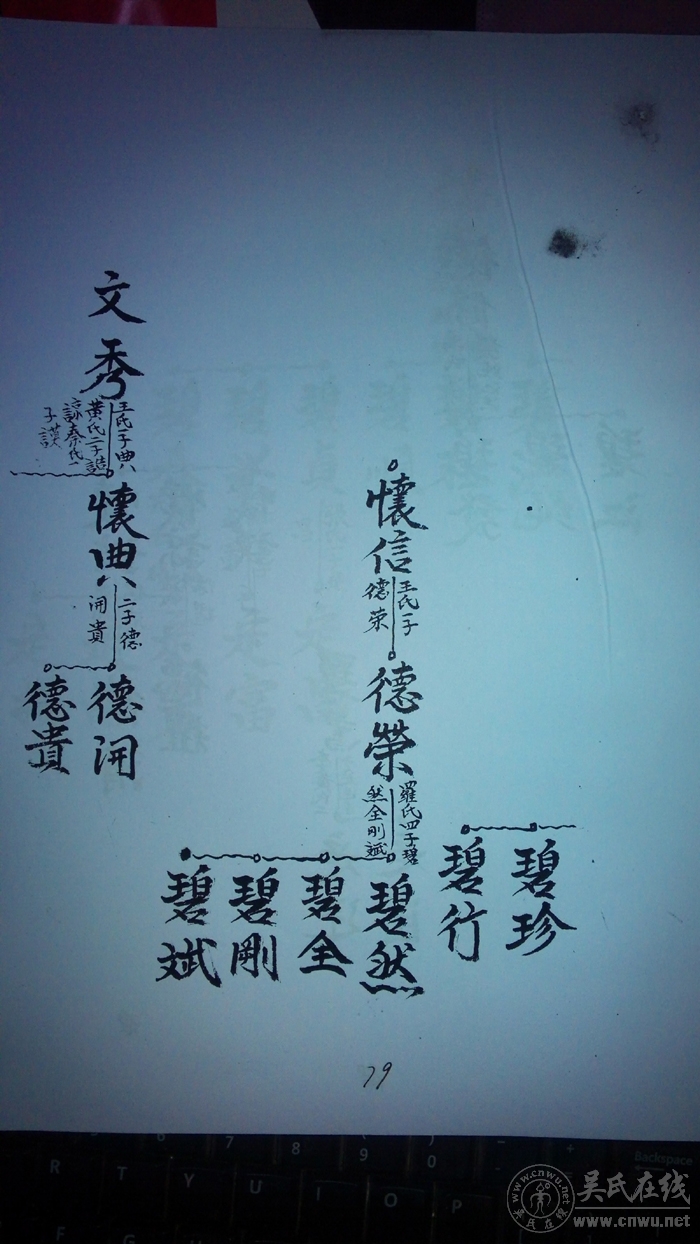 碧珍
碧行
懷信
王氏一子
德荣
德榮
羅氏四子碧
然全剛斌
碧然
碧全
碧剛
碧斌
文秀
王氏一子典
黄氏二子誥
諒秦氏一
子謨
懷典
二子德
開貴
德開
德貴
79
R T Y U I O P
7 8 9 0 - +
Backspace
吴氏在线
www.cnwu.net